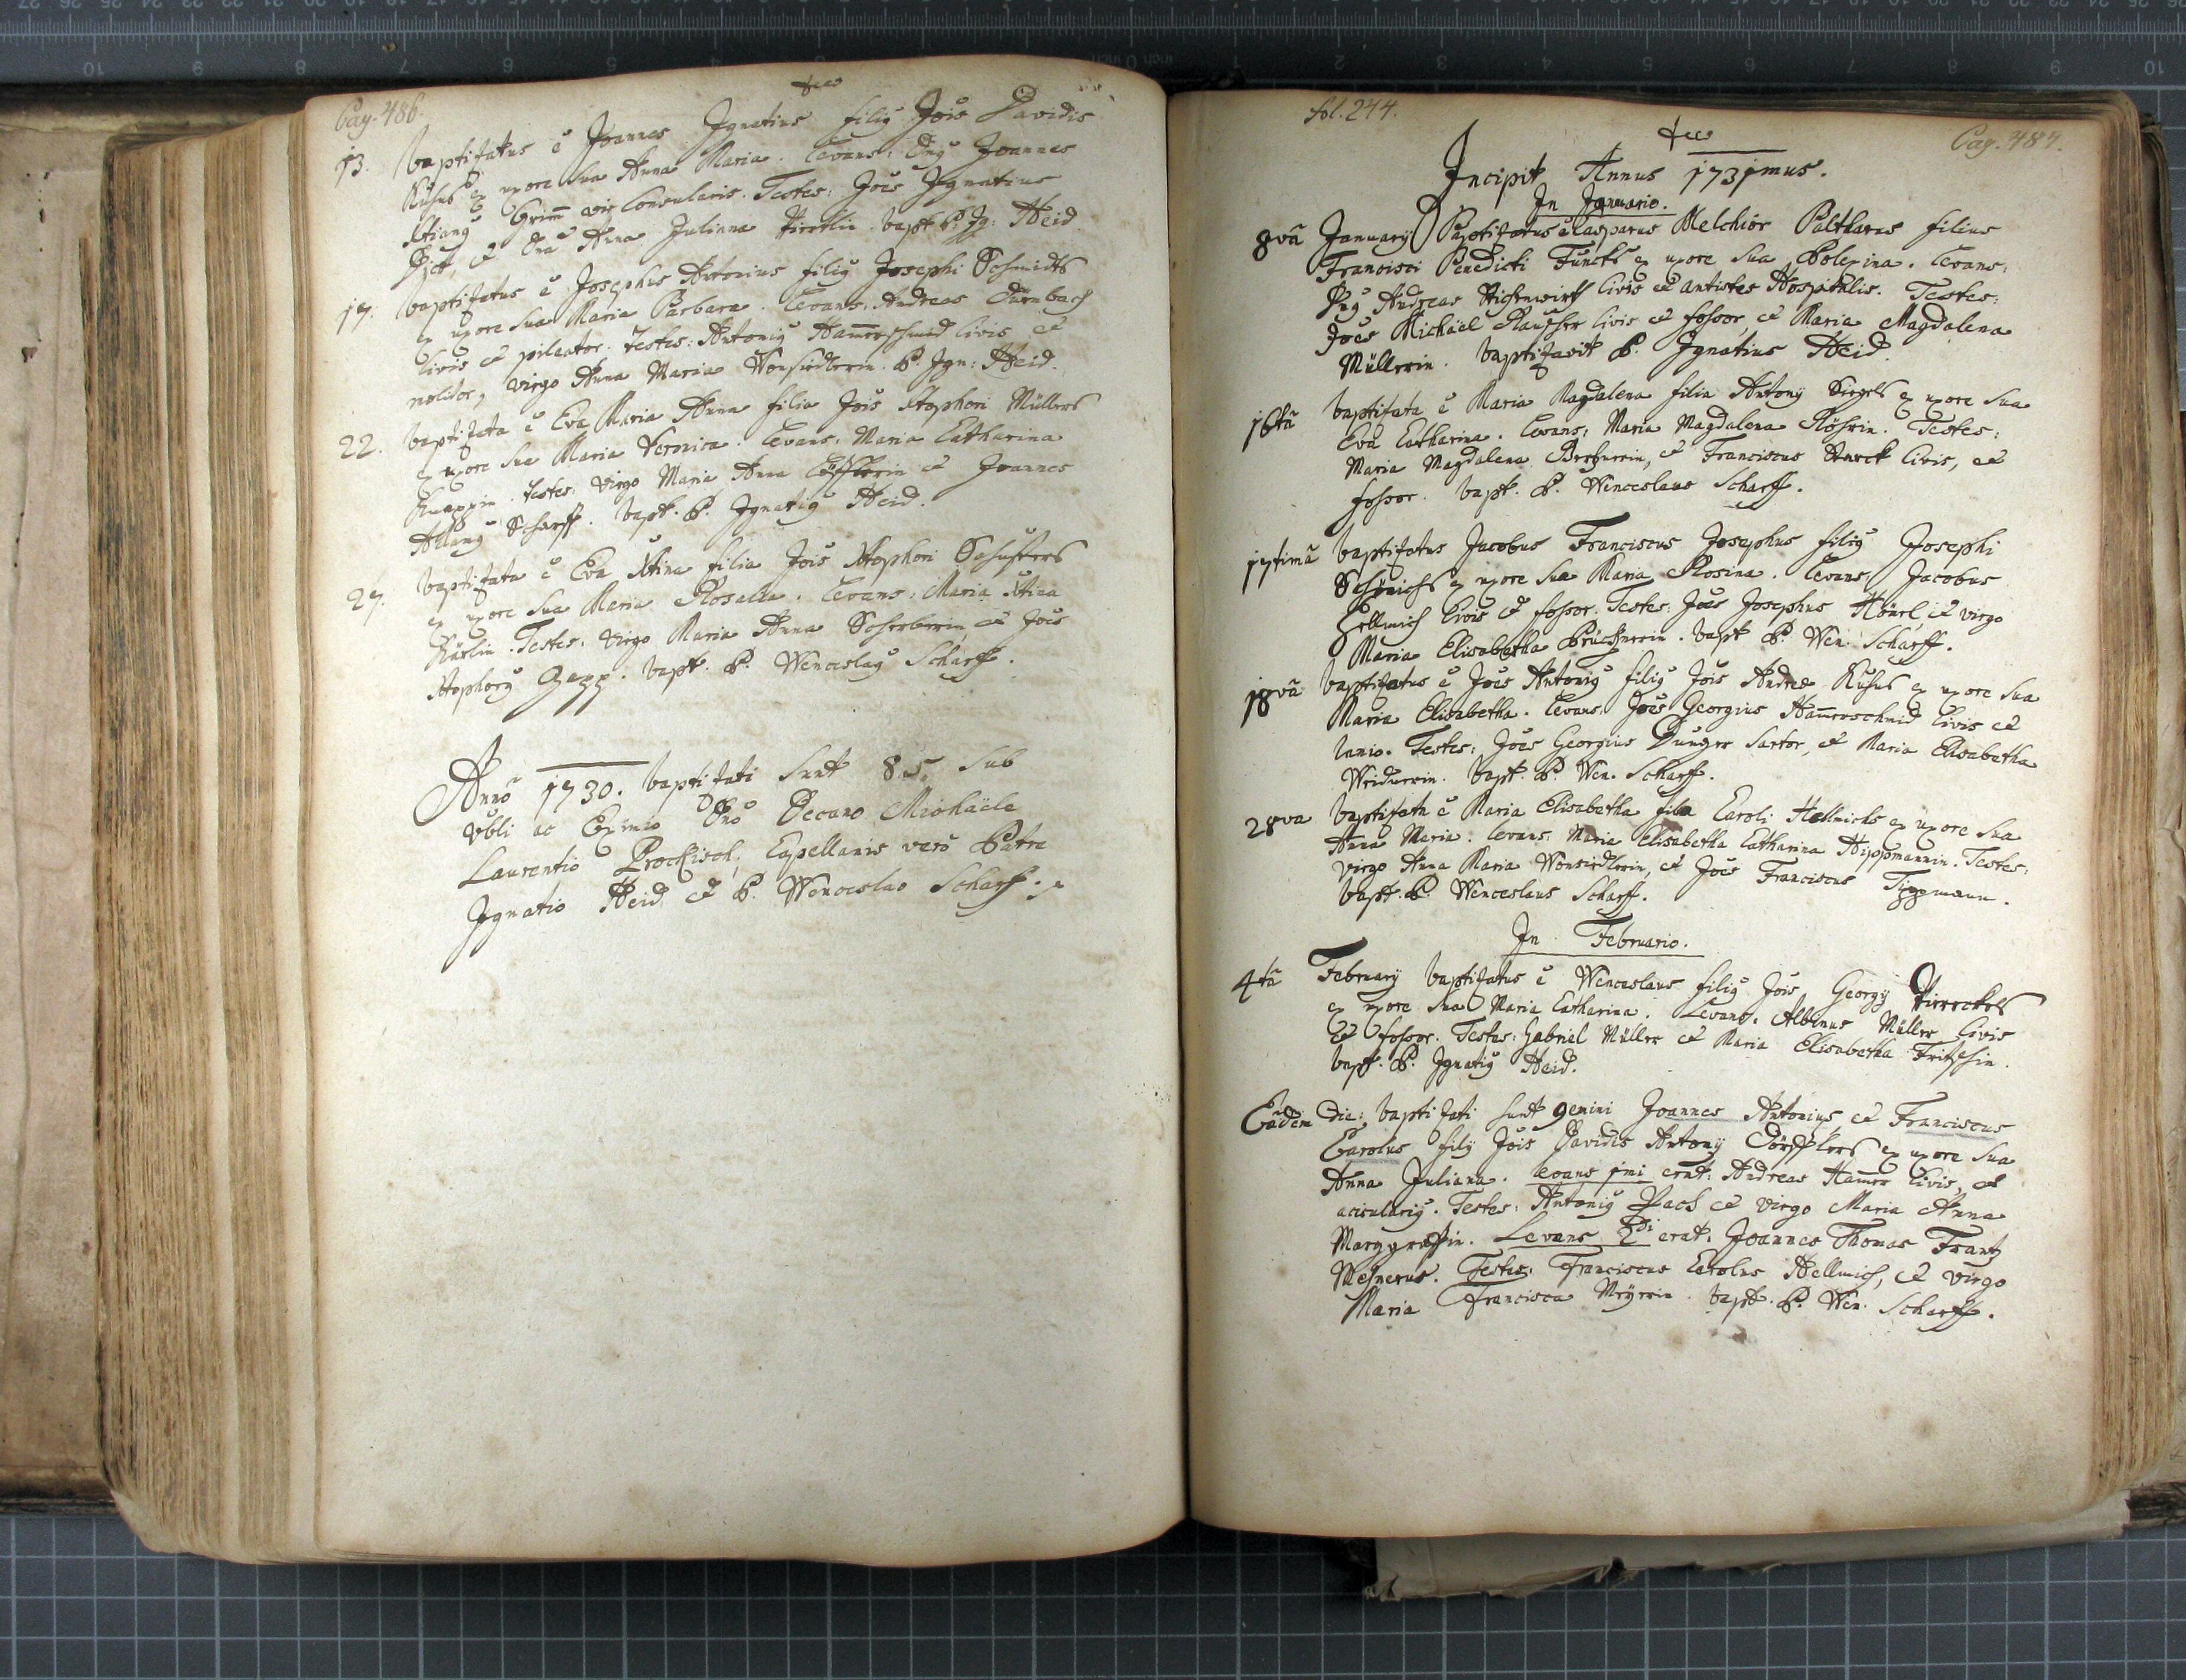 Pag. 486.
13. baptizatus ē Joannes Ignatius filiꝰ Jois Davidis
ex uxore sua Anna Maria. Levans: Dnꝰ Joannes
Xtianꝰ Grim̄ vir Consularis. Testes: Joes Ignatius
et Dna Anna Juliana bapt. P. Ig: Heid
17. baptizatus ē Josephus Antonius filiꝰ Josephi Schmidts
ex uxore sua Maria Barbara. Levans: Andreas Dürnbach
Civis et pileator. Testes: Antoniꝰ Ham̄erschmid Civis et
molitor, virgo Anna Maria Wonsidlerin. P. Ign: Heid.
22. baptizata ē Eva Maria Anna filia Jois Xtophori Müllers
ex uxore sua Maria Veronica. Levans: Maria Catharina
Knappin. Testes: virgo Maria Anna Löfflerin et Joannes
Scharff. bapt. P. Ignatiꝰ Heid.
27. baptizata ē Eva Xtina filia Jois Xtophori Schusters
ex uxore sua Maria Rosalia. Levans: Maria Xtina
Testes: virgo Maria Anna et Joes
Xtophorꝰ bapt. P. Wenceslaꝰ Scharff.
Anno 1730. baptizati sunt 85. sub
Vbli ac Eximio Dno Decano Michäele
Laurentio Prockisch, Capellanis vero Patre
Ignatio Heid et P. Wenceslao Scharff.
fol. 244.
Pag. 487.
Incipit Annus 1731mus.
In Januario.
8vâ Januarÿ Baptizatus ē Casparus Melchior Balthasar filius
Francisci Benedicti Functs ex uxore sua Polexina. Levans:
Dnꝰ Andreas Civis et antistes Hospitalis. Testes:
Joes Michäel Civis et fossor, et Maria Magdalena
Müllerin. baptizavit P. Ignatius Heid.
16tâ baptizata ē Maria Magdalena filia Antonÿ Siegels ex uxore sua
Eva Catharina. Levans: Maria Magdalena Testes:
Maria Magdalena et Franciscus Civis, et
fossor. bapt. P. Wenceslaus Scharff.
17timâ baptizatus Jacobus Franciscus Josephus filiꝰ Josephi
ex uxore sua Maria Rosina. Levans: Jacobus
Hellmich Civis et fossor. Testes: Joes Josephus et virgo
Maria Elisabetha Brücknerin. bapt. P. Wen: Scharff.
18vâ baptizatus ē Joes Antoniꝰ filiꝰ Jois Andreæ ex uxore sua
Maria Elisabetha. Levans: Joes Georgius Ham̄erschmid Civis et
lanio. Testes: Joes Georgius sartor, et Maria Elisabetha
Weidnerin. bapt. P. Wen. Scharff.
28va baptizata ē Maria Elisabetha filia Caroli Hellmichs ex uxore sua
Anna Maria. Levans: Maria Elisabetha Catharina Hippmannin. Testes:
virgo Anna Maria Wonsidlerin, et Joes Franciscus Tippmann.
bapt. P. Wenceslaus Scharff.
In Februario.
4tâ Februarÿ baptizatus ē Wenceslaus filiꝰ Jois Georgÿ
ex uxore sua Maria Catharina. Levans: Albinus Müller Civis
et fossor. Testes: Gabriel Müller et Maria Elisabetha Fritschin.
bapt. P. Ignatiꝰ Heid.
Eâdem die: baptizati sunt gemini Joannes Antonius, et Franciscus
Carolus filÿ Jois Davidis Antonÿ Dörfflers ex uxore sua
Anna Juliana. Levans 1mi erat: Andreas Ham̄er Civis, et
acicularig. Testes: Antoniꝰ Pach et virgo Maria Anna
Marggräffin. Levans 2di erat: Joannes Thomas Frantz
Testes: Franciscus Carolus Hellmich, et virgo
Maria Francisca Meÿerin. bapt. P. Wen. Scharff.